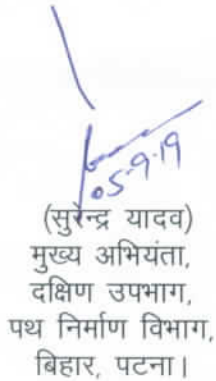 05-9-19
(सुरेन्द्र यादव)
मुख्य अभियंता,
दक्षिण उपभाग,
पथ निर्माण विभाग,
बिहार, पटना।